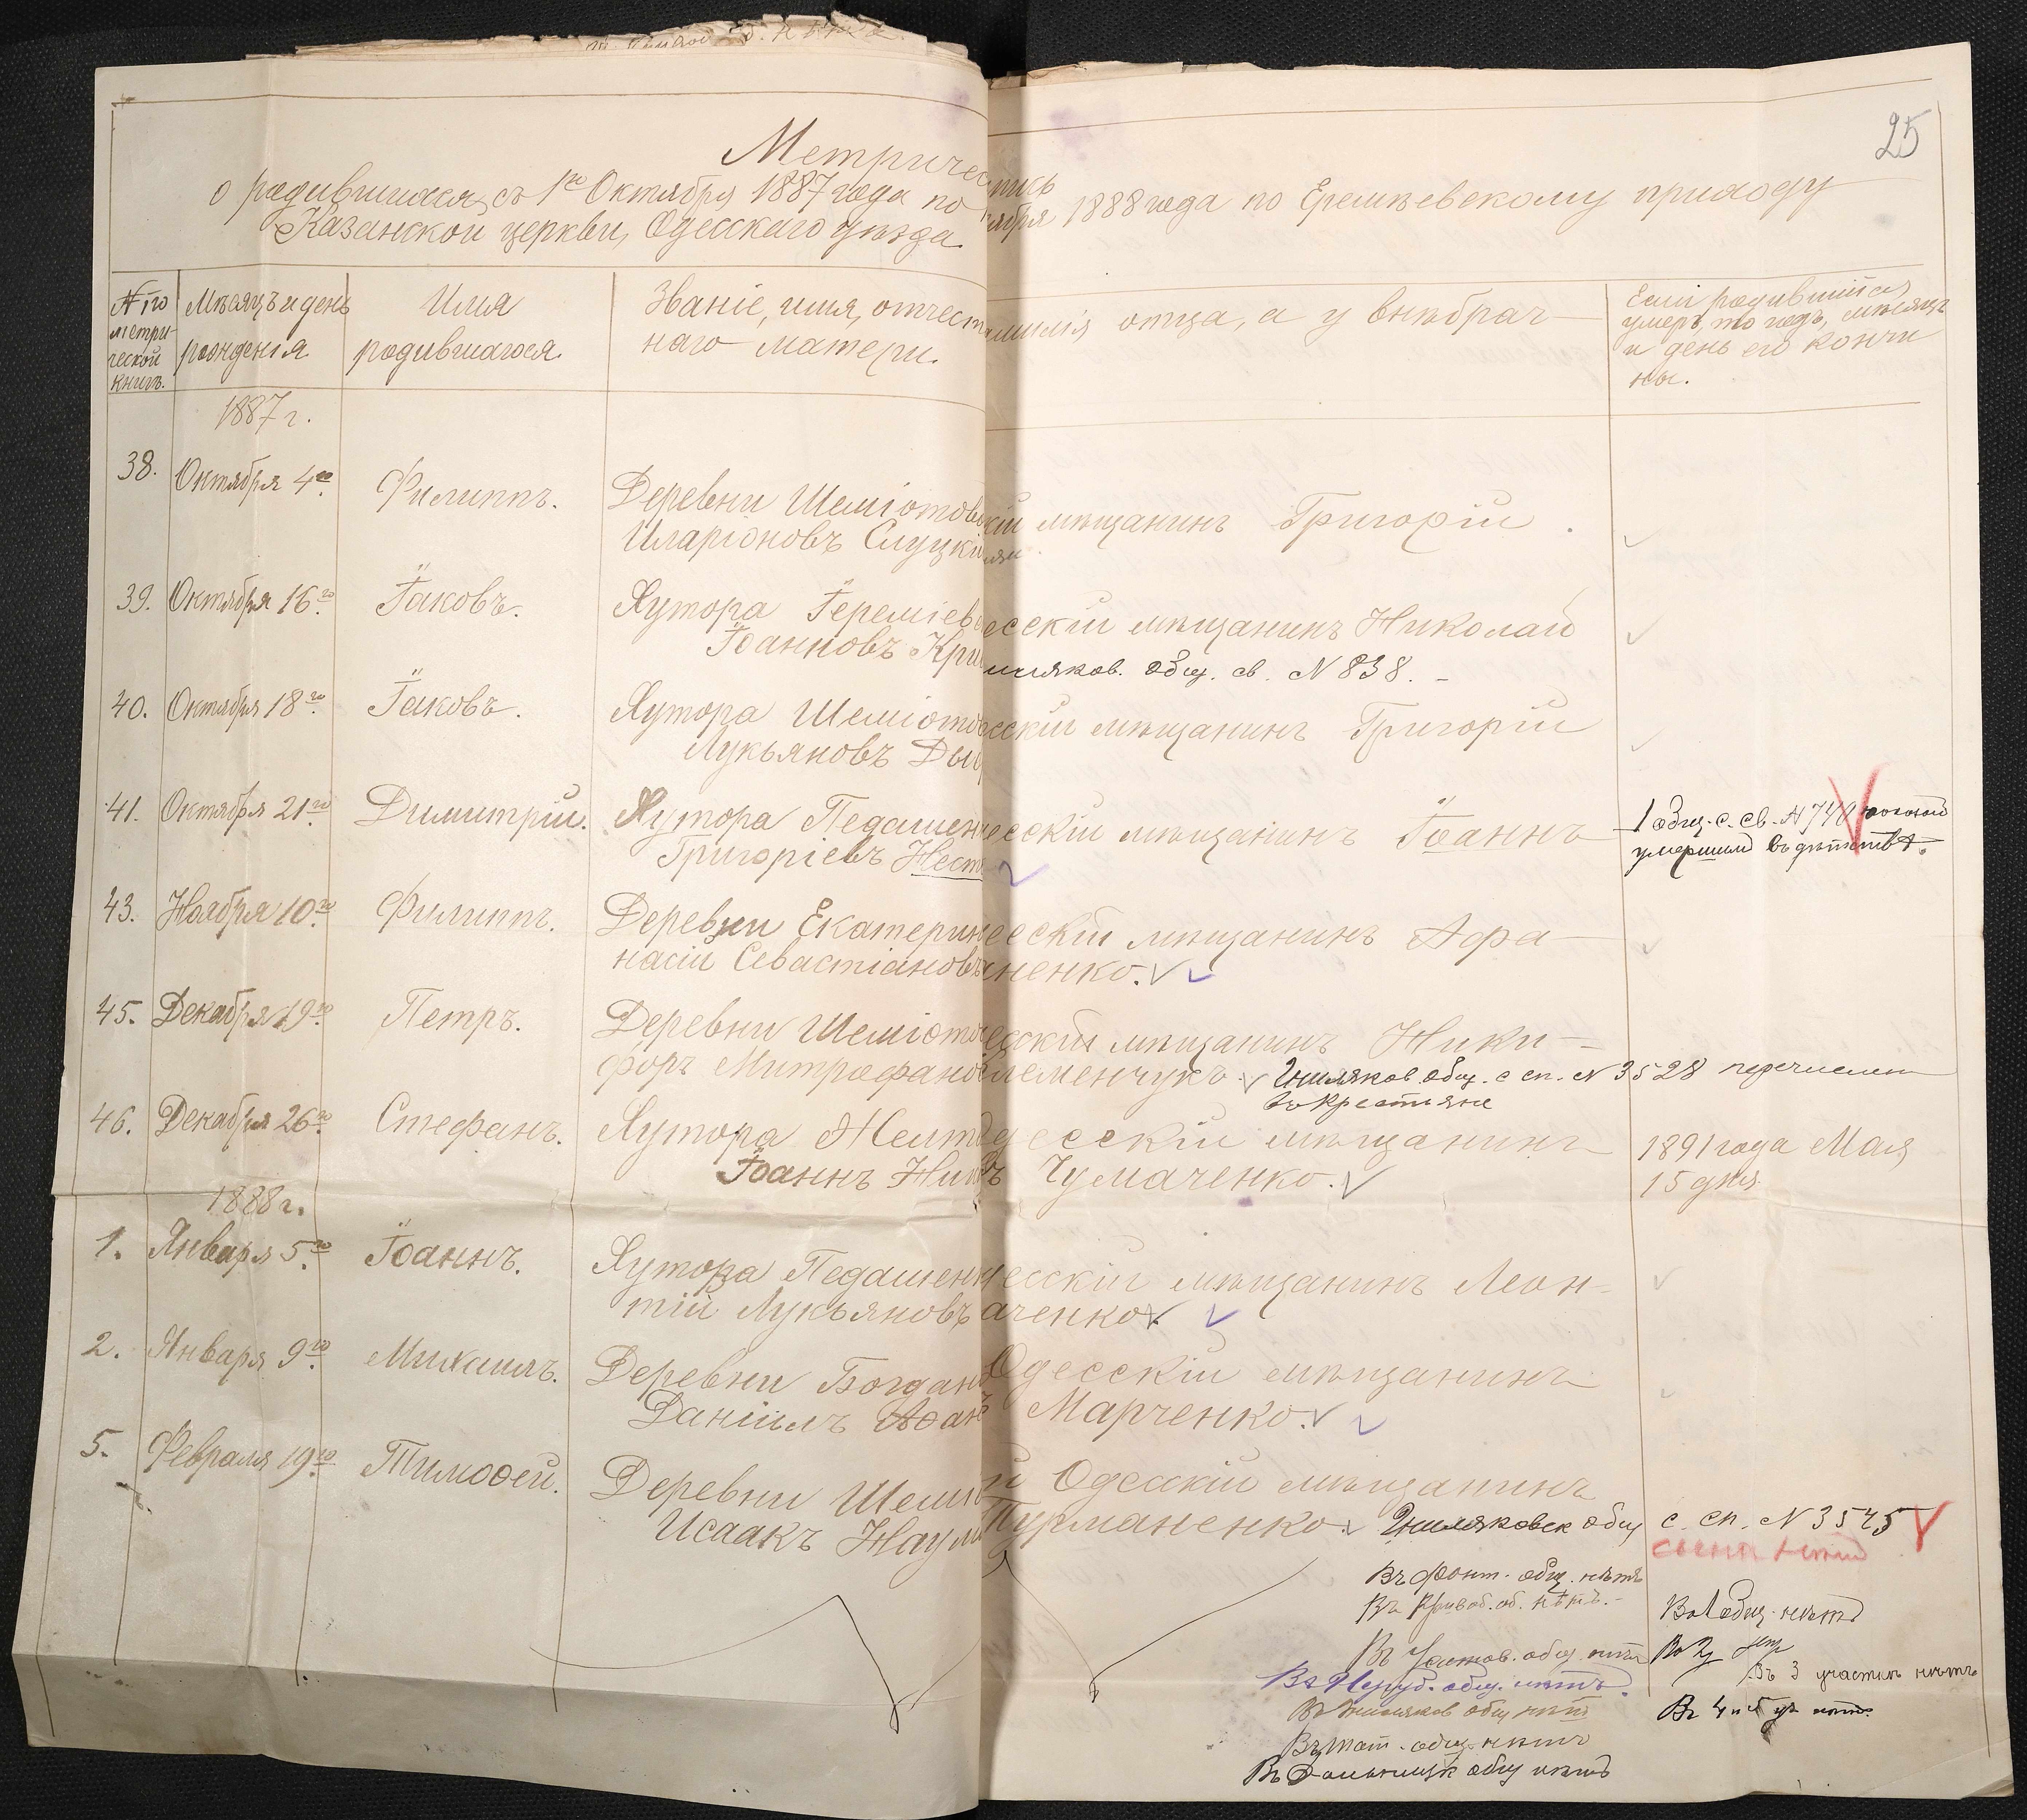 25
Метричес пись
о родившихся, съ 1го Октября 1887 года по ября 1888 года по Еремѣевскому приходу
Казанской церкви, Одесскаго уѣзда
№ по метрической книгѣ.
Мѣсяцъ и день рожденія
Имя родившагося.
Званіе, имя, отчест милія отца, а у внѣбрач-
наго матери.
Если родившійся умеръ, то годъ, мѣсяцъ и день его кончины.
1887 г.
38. Октября 4го Филиппъ. Деревни Шеміотов скій мѣщанинъ Григорій
Иларіоновъ Слуцкі
39. Октября 16го Іаковъ. Хутора Іереміев есскій мѣщанинъ Николай
Іоанновъ Кри
гниляков. общ. св. N 838. -
40. Октября 18го Іаковъ. Хутора Шеміото есскій мѣщанинъ Григорій
Лукьяновъ Ды
41. Октября 21го Димитрій. Хутора Педашен есскій мѣщанинъ Іоаннъ
Григоріевъ Нест
1 общ. с. св. N 740
умершимъ въ дѣтствѣ.
43. Ноября 10го Филиппъ. Деревни Екатерин есскій мѣщанинъ Афа-
насій Севастіановъ ненко.
45. Декабря 19го Петръ. Деревни Шеміото есскій мѣщанинъ Ники-
форъ Митрофано еменчукъ. Гниляков общ. с сп. N 3528 перечислен
въ крестьяне
46. Декабря 26го Стефанъ. Хутора Желт десскій мѣщанинъ 1891 года Мая
Іоаннъ Ник ъ Чумаченко. 15 дня
1888 г.
1. Января 5го Іоаннъ. Хутора Педашен есскій мѣщанинъ Леон-
тій Лукьяновъ аченко
2. Января 9го Михаилъ. Деревни Богдан Одесскій мѣщанинъ
Даніилъ Марченко.
5. Февраля 19го Тимоѳей. Деревни Шемі й Одесскій мѣщанинъ
Исаакъ Наум Турманенко. Гниляковск общ с. сп. N 3545
Въ Фонт. общ. нѣтъ
Въ Кривоб. об. нѣтъ. -
Въ 1 общ. нѣтъ
Въ Усатов. общ нѣтъ
Въ 3 участкѣ нѣтъ
Въ Неруб. общ. нѣтъ.
Въ Гниляков общ нѣтъ
Въ 4 и 5 уч нѣтъ.
Въ Тат. общ. нѣтъ
Въ Дальницк общ нѣтъ